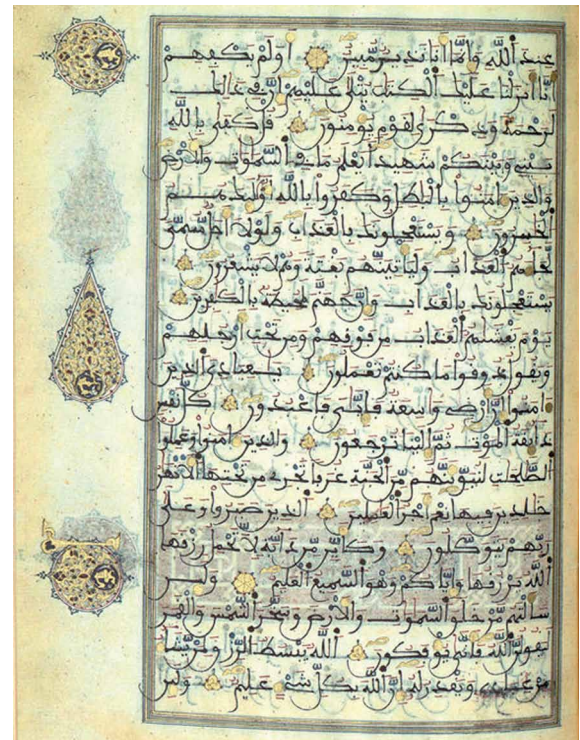 عند الله وإنما أنا نذير مبين أولم يكفهم
أنا أنزلنا عليك الكتب يتلى عليهم إن في ذلك
لرحمة وذكرى لقوم يومنون قل كفى بالله
بيني وبينكم شهيدا يعلم ما في السموت والارض
والذين ءامنوا بالبطل وكفروا بالله أولئك هم
الخسرون ويستعجلونك بالعذاب ولولا أجل مسمى
لجاءهم العذاب وليأتينهم بغتة وهم لا يشعرون
يستعجلونك بالعذاب وإن جهنم لمحيطة بالكفرين
يوم يغشيهم العذاب من فوقهم ومن تحت أرجلهم
ويقول ذوقوا ما كنتم تعملون يعبادي الذين
ءامنوا إن أرضي وسعة فإيي فاعبدون كل نفس
ذائقة الموت ثم إلينا ترجعون والذين ءامنوا وعملوا
الصلحت لنبوئنهم من الجنة غرفا تجري من تحتها الانهر
خلدين فيها نعم أجر العملين الذين صبروا وعلى
ربهم يتوكلون وكأين من دابة لا تحمل رزقها
الله يرزقها وإياكم وهو السميع العليم ولئن
سألتهم من خلق السموت والارض وسخر الشمس والقمر
ليقولن الله فأنى يوفكون الله يبسط الرزق لمن يشاء
من عباده ويقدر له إن الله بكل شيء عليم ولئن